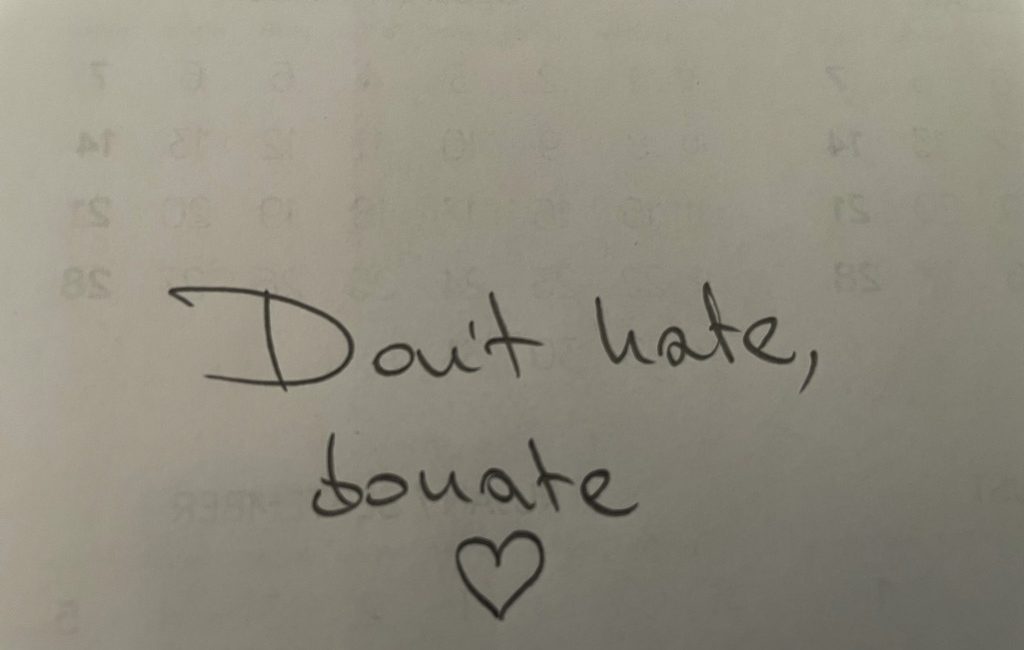 Don't hate,
donate